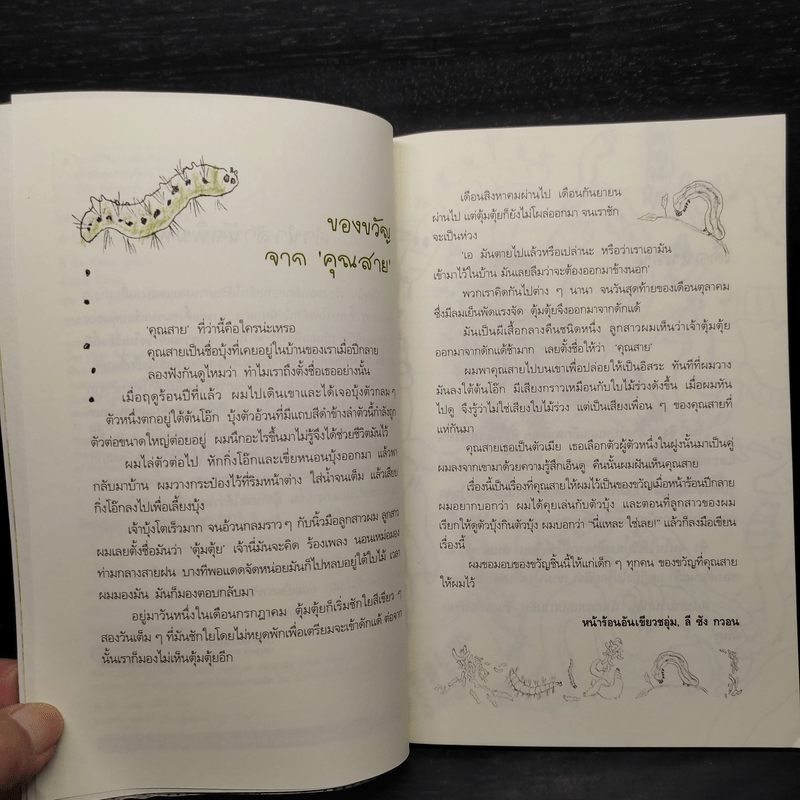 ของขวัญ
จาก 'คุณสาย'
'คุณสาย' ที่ว่านี้คือใครน่ะเหรอ
คุณสายเป็นชื่อบุ้งที่เคยอยู่ในบ้านของเราเมื่อปีกลาย
ลองฟังกันดูไหมว่า ทำไมเราถึงตั้งชื่อเธออย่างนั้น
เมื่อฤดูร้อนปีที่แล้ว ผมไปเดินเขาและได้เจอบุ้งตัวกลม ๆ
ตัวหนึ่งตกอยู่ใต้ต้นโอ๊ก บุ้งตัวอ้วนที่มีแถบสีดำข้างลำตัวนี้กำลังถูก
ตัวต่อขนาดใหญ่ต่อยอยู่ ผมนึกอะไรขึ้นมาไม่รู้จึงได้ช่วยชีวิตมันไว้
ผมไล่ตัวต่อไป หักกิ่งโอ๊กและเขี่ยหนอนบุ้งออกมา แล้วพา
กลับมาบ้าน ผมวางกระป๋องไว้ที่ริมหน้าต่าง ใส่น้ำจนเต็ม แล้วเสียบ
กิ่งโอ๊กลงไปเพื่อเลี้ยงบุ้ง
เจ้าบุ้งโตเร็วมาก จนอ้วนกลมราว ๆ กับนิ้วมือลูกสาวผม ลูกสาว
ผมเลยตั้งชื่อมันว่า 'ตุ้มตุ้ย' เจ้านี่มันจะคิด ร้องเพลง นอนเหม่อมอง
ท่ามกลางสายฝน บางทีพอแดดจัดหน่อยมันก็ไปหลบอยู่ใต้ใบไม้ เวลา
ผมมองมัน มันก็มองตอบกลับมา
อยู่มาวันหนึ่งในเดือนกรกฎาคม ตุ้มตุ้ยก็เริ่มชักใยสีเขียว ๆ
สองวันเต็ม ๆ ที่มันชักใยโดยไม่หยุดพักเพื่อเตรียมจะเข้าดักแด้ ต่อจาก
นั้นเราก็มองไม่เห็นตุ้มตุ้ยอีก
เดือนสิงหาคมผ่านไป เดือนกันยายน
ผ่านไป แต่ตุ้มตุ้ยก็ยังไม่โผล่ออกมา จนเราชัก
จะเป็นห่วง
'เอ มันตายไปแล้วหรือเปล่านะ หรือว่าเราเอามัน
เข้ามาไว้ในบ้าน มันเลยลืมว่าจะต้องออกมาข้างนอก'
พวกเราคิดกันไปต่าง ๆ นานา จนวันสุดท้ายของเดือนตุลาคม
ซึ่งมีลมเย็นพัดแรงจัด ตุ้มตุ้ยจึงออกมาจากดักแด้
มันเป็นผีเสื้อกลางคืนชนิดหนึ่ง ลูกสาวผมเห็นว่าเจ้าตุ้มตุ้ย
ออกมาจากดักแด้ช้ามาก เลยตั้งชื่อให้ว่า 'คุณสาย'
ผมพาคุณสายไปบนเขาเพื่อปล่อยให้เป็นอิสระ ทันทีที่ผมวาง
มันลงใต้ต้นโอ๊ก มีเสียงกราวเหมือนกับใบไม้ร่วงดังขึ้น เมื่อผมหัน
ไปดู จึงรู้ว่าไม่ใช่เสียงใบไม้ร่วง แต่เป็นเสียงเพื่อน ๆ ของคุณสายที่
แห่กันมา
คุณสายเธอเป็นตัวเมีย เธอเลือกตัวผู้ตัวหนึ่งในฝูงนั้นมาเป็นคู่
ผมลงจากเขามาด้วยความรู้สึกเอ็นดู คืนนั้นผมฝันเห็นคุณสาย
เรื่องนี้เป็นเรื่องที่คุณสายให้ผมไว้เป็นของขวัญเมื่อหน้าร้อนปีกลาย
ผมอยากบอกว่า ผมได้คุยเล่นกับตัวบุ้ง และตอนที่ลูกสาวของผม
เรียกให้ดูตัวบุ้งกินตัวบุ้ง ผมบอกว่า "นี่แหละ ใช่เลย!" แล้วก็ลงมือเขียน
เรื่องนี้
ผมขอมอบของขวัญชิ้นนี้ให้แก่เด็ก ๆ ทุกคน ของขวัญที่คุณสาย
ให้ผมไว้
หน้าร้อนอันเขียวชอุ่ม, ลี ซัง กวอน